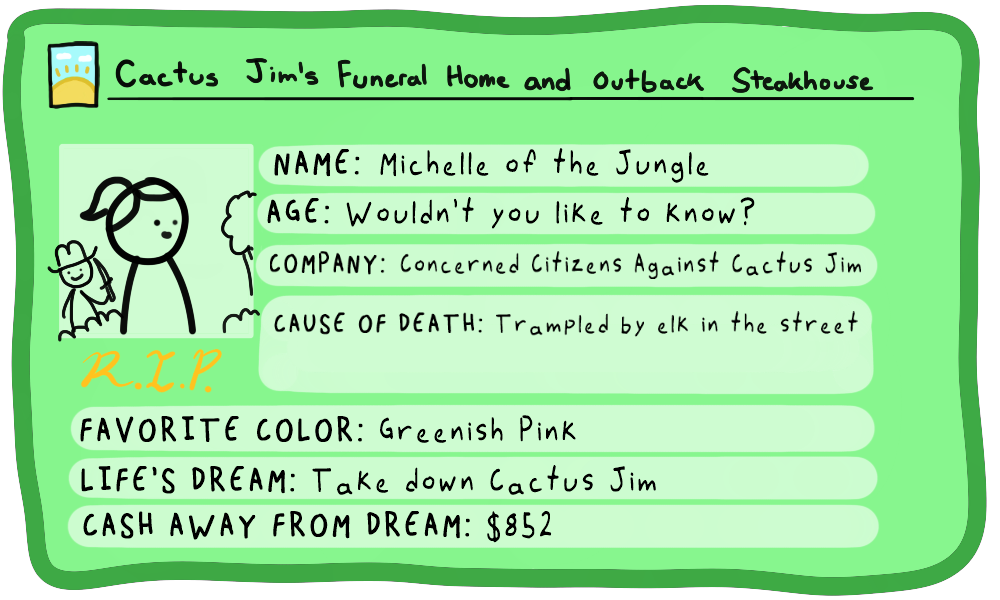 Cactus Jim's Funeral Home and Outback Steakhouse
NAME: Michelle of the Jungle
AGE: Wouldn't you like to know?
COMPANY: Concerned Citizens Against Cactus Jim
CAUSE OF DEATH: Trampled by elk in the street
R.I.P.
FAVORITE COLOR: Greenish Pink
LIFE'S DREAM: Take down Cactus Jim
CASH AWAY FROM DREAM: $852